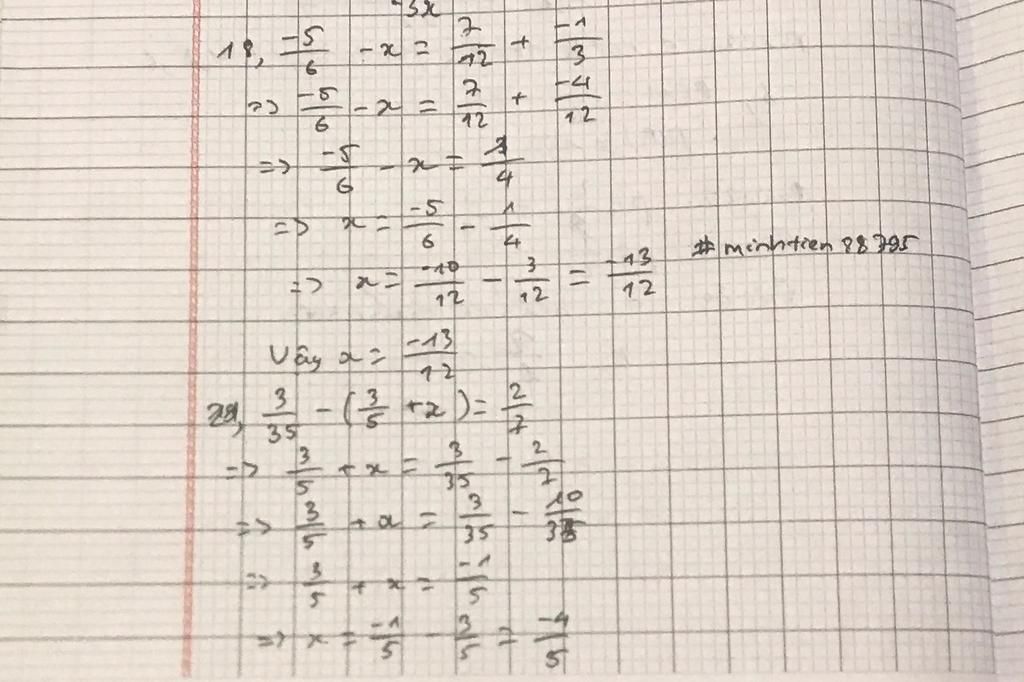 -3x
18, -5/6 - x = 7/12 + -1/3
=> -5/6 - x = 7/12 + -4/12
=> -5/6 - x = 1/4
=> x = -5/6 - 1/4
=> x = -10/12 - 3/12 = -13/12
#minhtien
Vây x = -13/12
3/35 - (3/5 + x) = 2/7
=> 3/5 + x = 3/35 - 2/7
=> 3/5 + x = 3/35 - 10/35
=> 3/5 + x = -1/5
=> x = -1/5 - 3/5 = -4/5